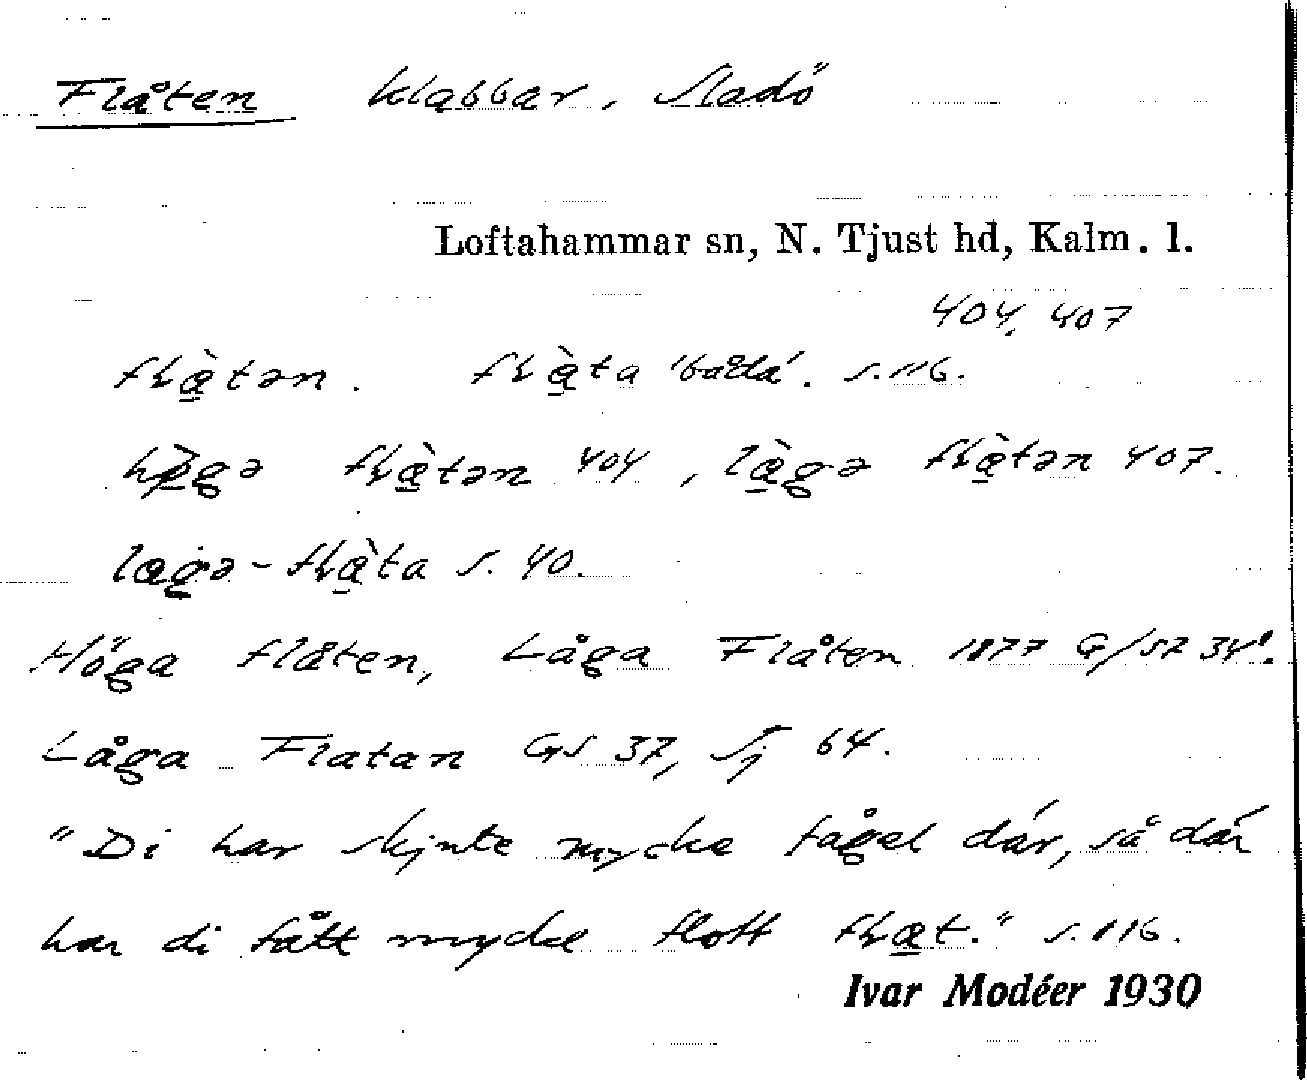 Flåten klabbar, Sladö
Loftahammar sn, N. Tjust hd, Kalm. l.
404, 407
fłæ̀tən. fłæ̀ta 'båda'. s. 116.
hø̀gə fłæ̀tən 404, læ̀gə fłæ̀tən 407.
lægə-fłæ̀ta s. 40.
Höga flåten, Låga Flåten 1877 G/57 34'.
Låga Flatan GS 37, Sj 64.
"Di har skjute mycke fågel där, så där
har di fått mycke flott fłæt." s. 116.
Ivar Modéer 1930